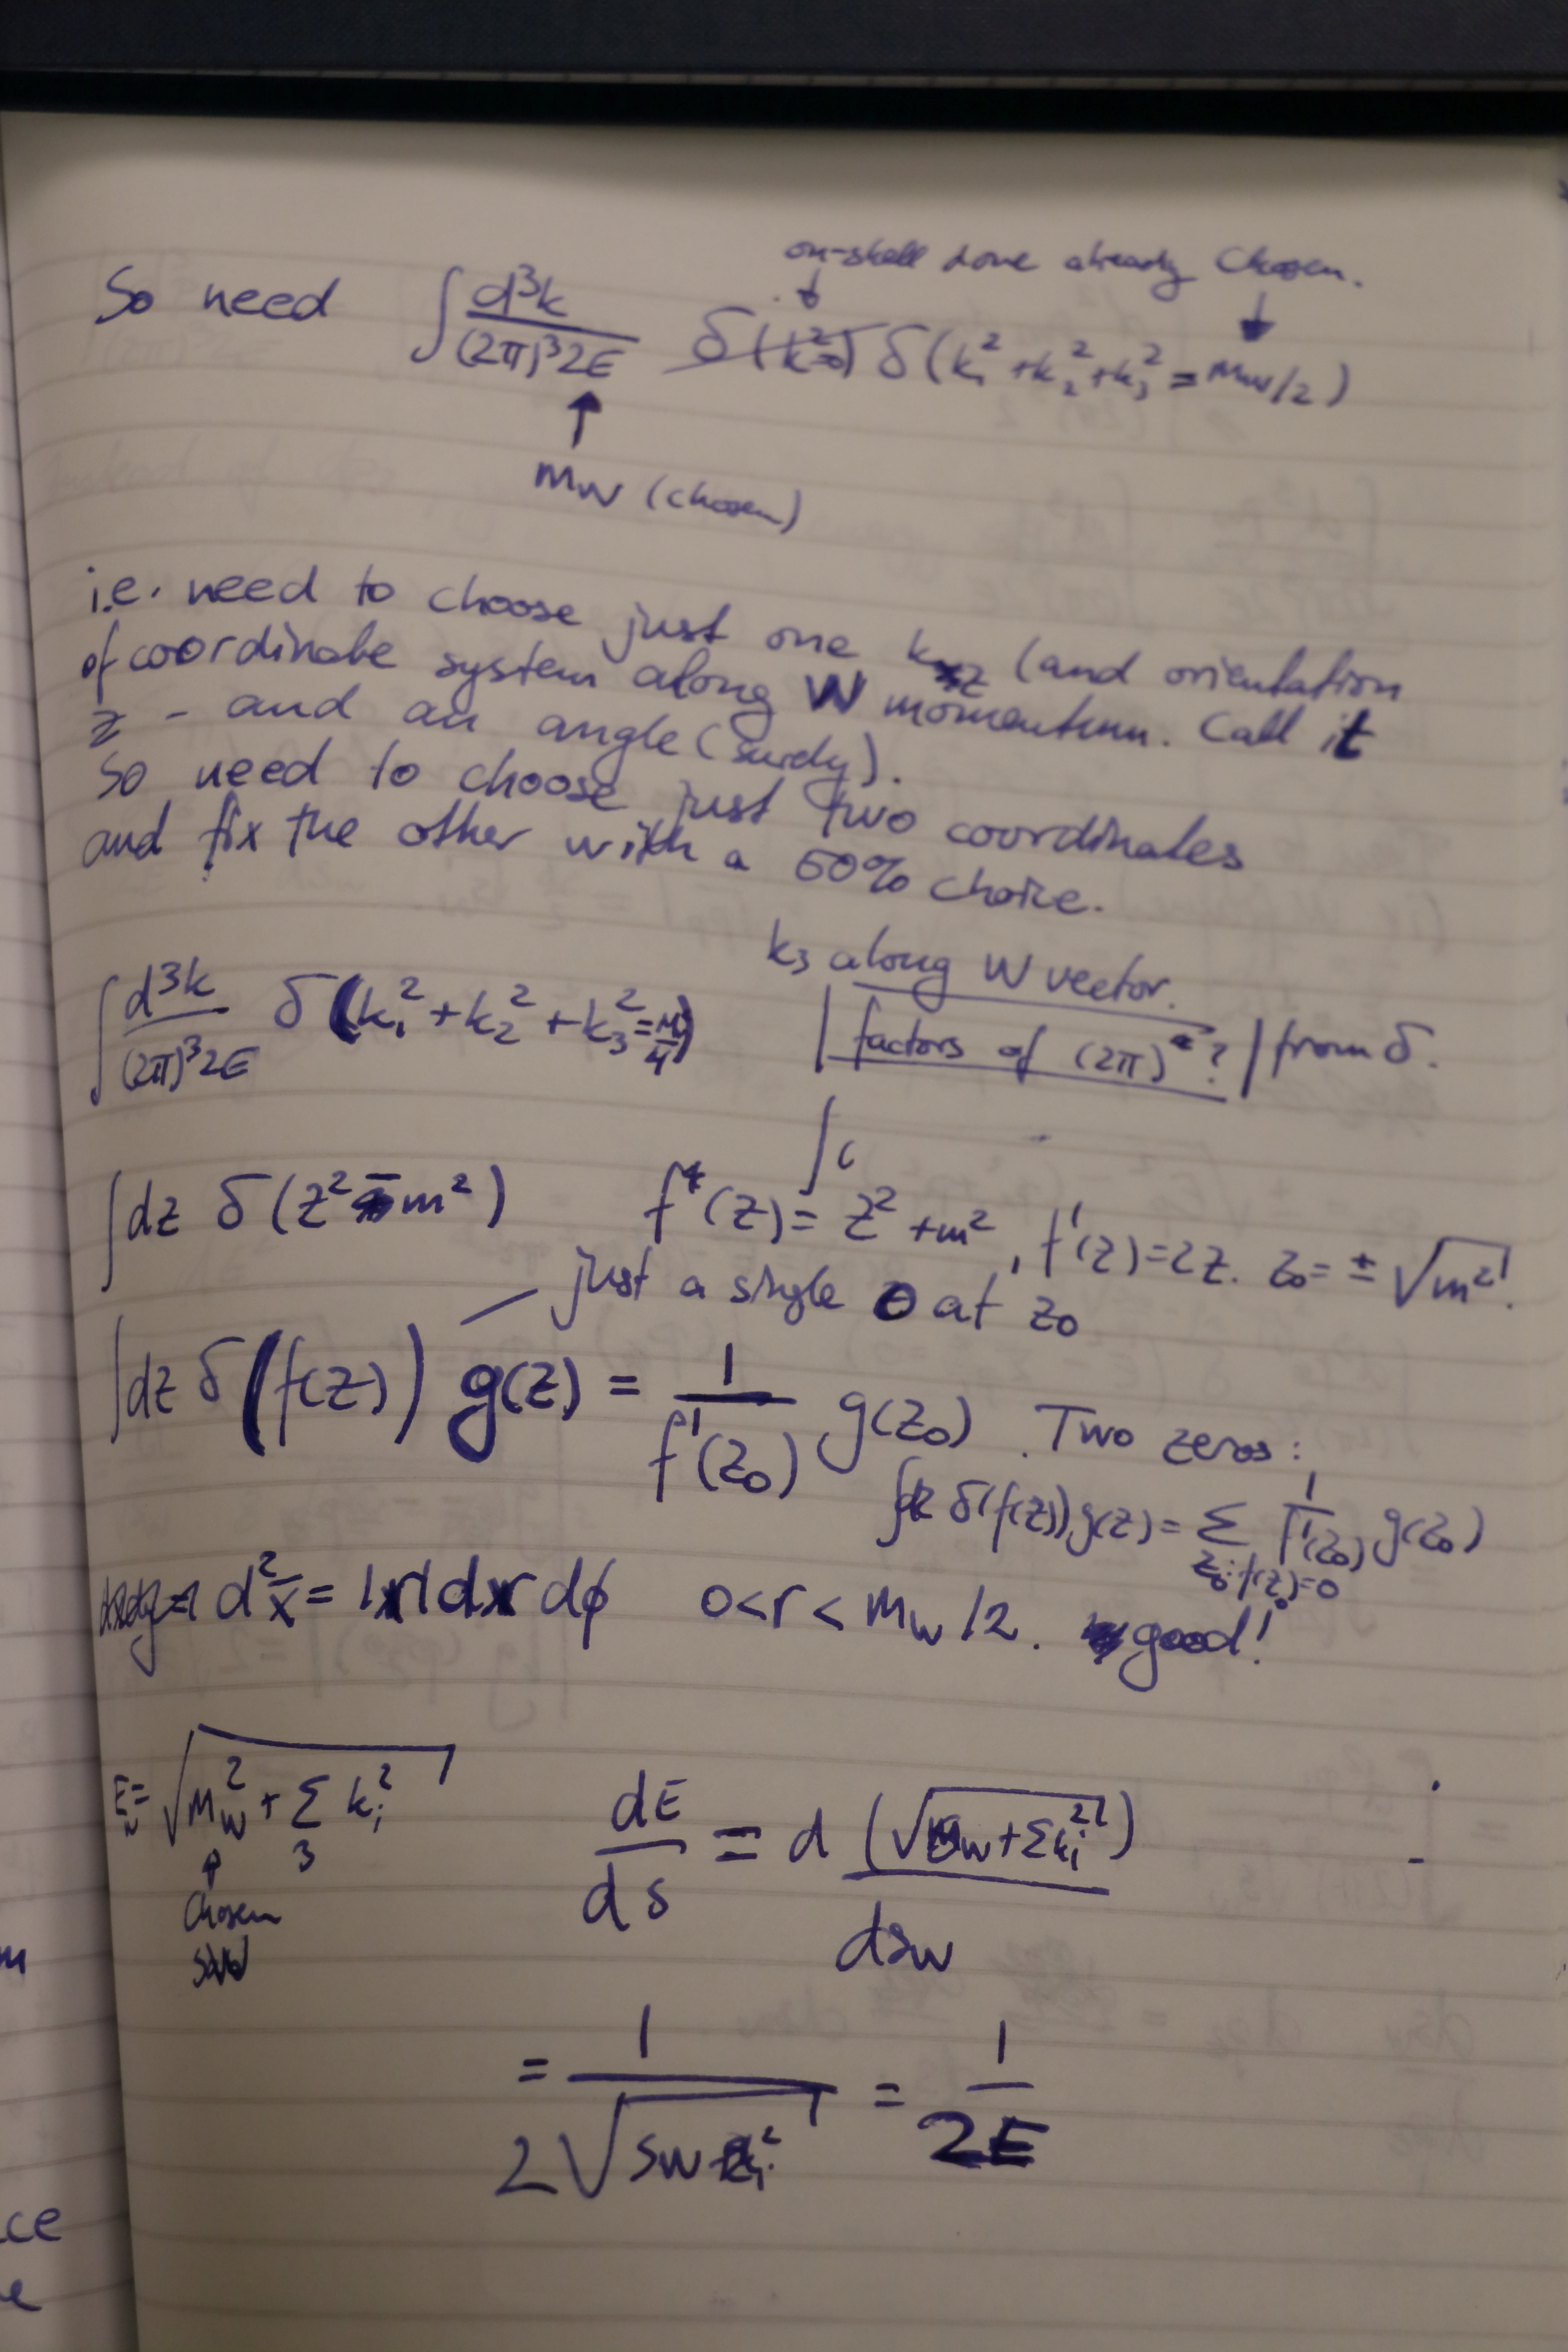 on-shell done already chosen.
So need ∫ d³k / (2π)³2E δ(k²=0) δ(k₁² + k₂² + k₃² = mw/2)
↑
mw (chosen)
i.e. need to choose just one k z (and orientation
of coordinate system along W momentum. Call it
z - and an angle (surely).
So need to choose just two coordinates
and fix the other with a 50% choice.
k₃ along W vector.
∫ d³k / (2π)³2E δ(k₁² + k₂² + k₃² = M/4) | factors of (2π) ? | from δ.
∫ (
∫ dz δ(z² - m²) f(z) = z² + m², f'(z) = 2z. z₀ = ± √m².
just a single 0 at z₀
∫ dz δ(f(z)) g(z) = 1 / f'(z₀) g(z₀). Two zeros:
∫ dz δ(f(z)) g(z) = Σ z₀: f(z₀)=0 1 / f'(z₀) g(z₀)
d²x = |r| dr dϕ 0 < r < mw/2. good!
Ew = √ Mw² + Σ₃ kᵢ² dE / ds = d (√ sw + Σkᵢ²) / dsw
↑
chosen
sw
= 1 / 2√ sw + Σkᵢ² = 1 / 2E
ce